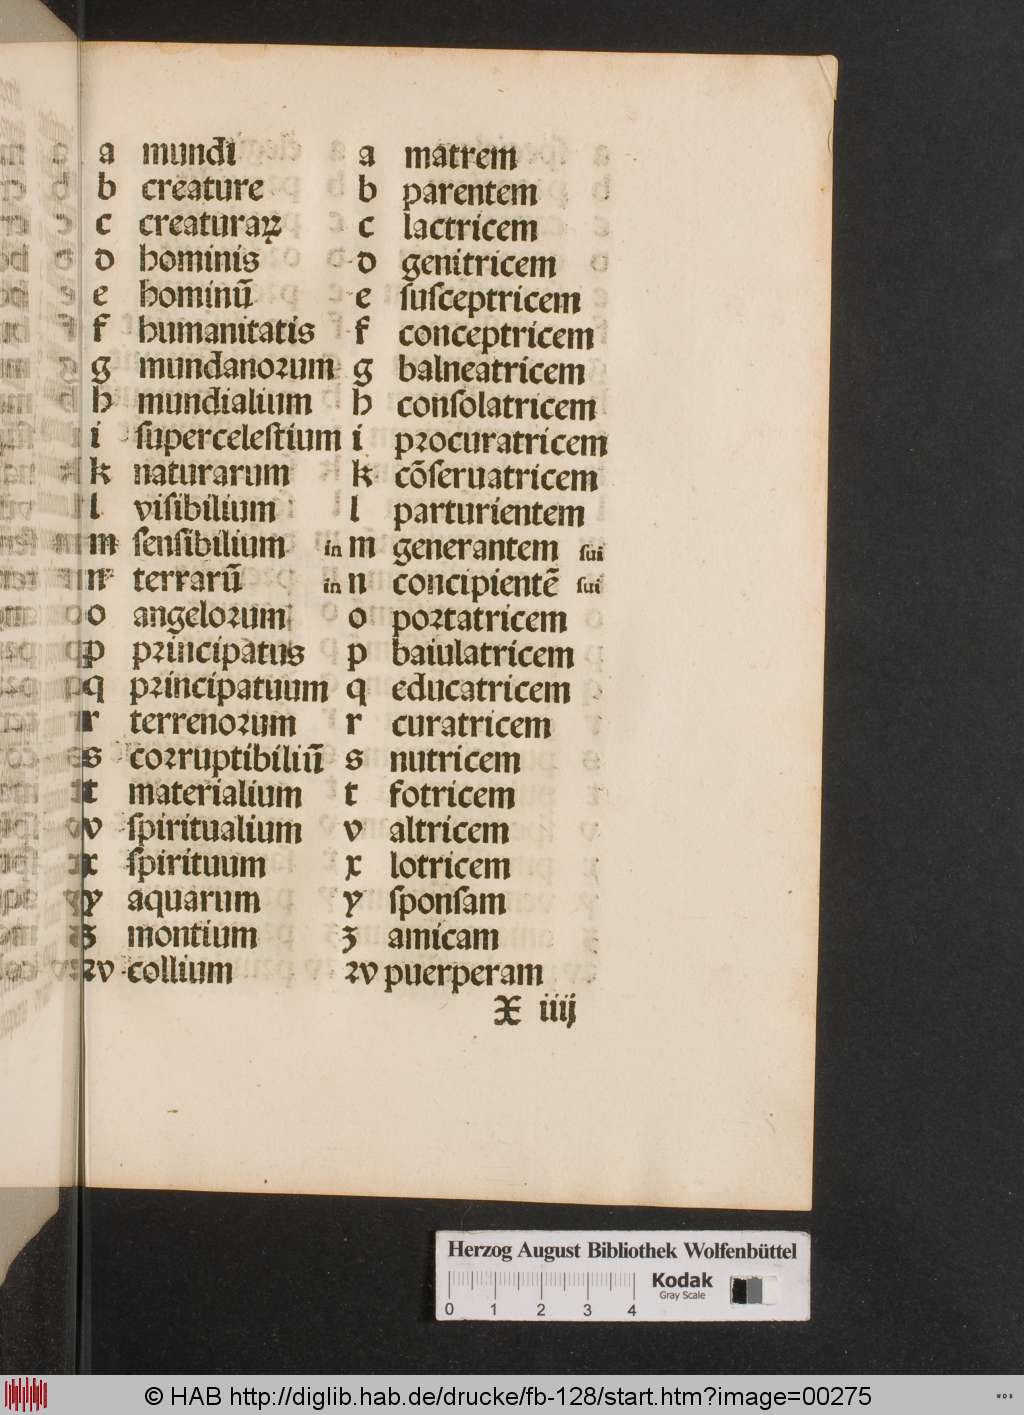 a mundi
b creature
c creaturaꝝ
d hominis
e hominū
f humanitatis
g mundanoꝛum
h mundialium
i ſupercele​ſtium
k naturarum
l viſibilium
m ſenſibilium
n terrarū
o angeloꝛum
p pꝛincipatus
q pꝛincipatuum
r terrenoꝛum
s coꝛruptibiliū
t materialium
v ſpiritualium
x ſpirituum
y aquarum
z montium
ꝛv collium
a matrem
b parentem
c lactricem
d genitricem
e ſuſceptricem
f conceptricem
g balneatricem
h conſolatricem
i pꝛocuratricem
k cōſeruatricem
l parturientem
in m generantem ſui
in n concipientē ſui
o poꝛtatricem
p baiulatricem
q educatricem
r curatricem
s nutricem
t fotricem
v altricem
x lotricem
y ſponſam
z amicam
ꝛv puerperam
X iiij
Herzog August Bibliothek Wolfenbüttel
Kodak
Gray Scale
0 1 2 3 4
© HAB http://diglib.hab.de/drucke/fb-128/start.htm?image=00275